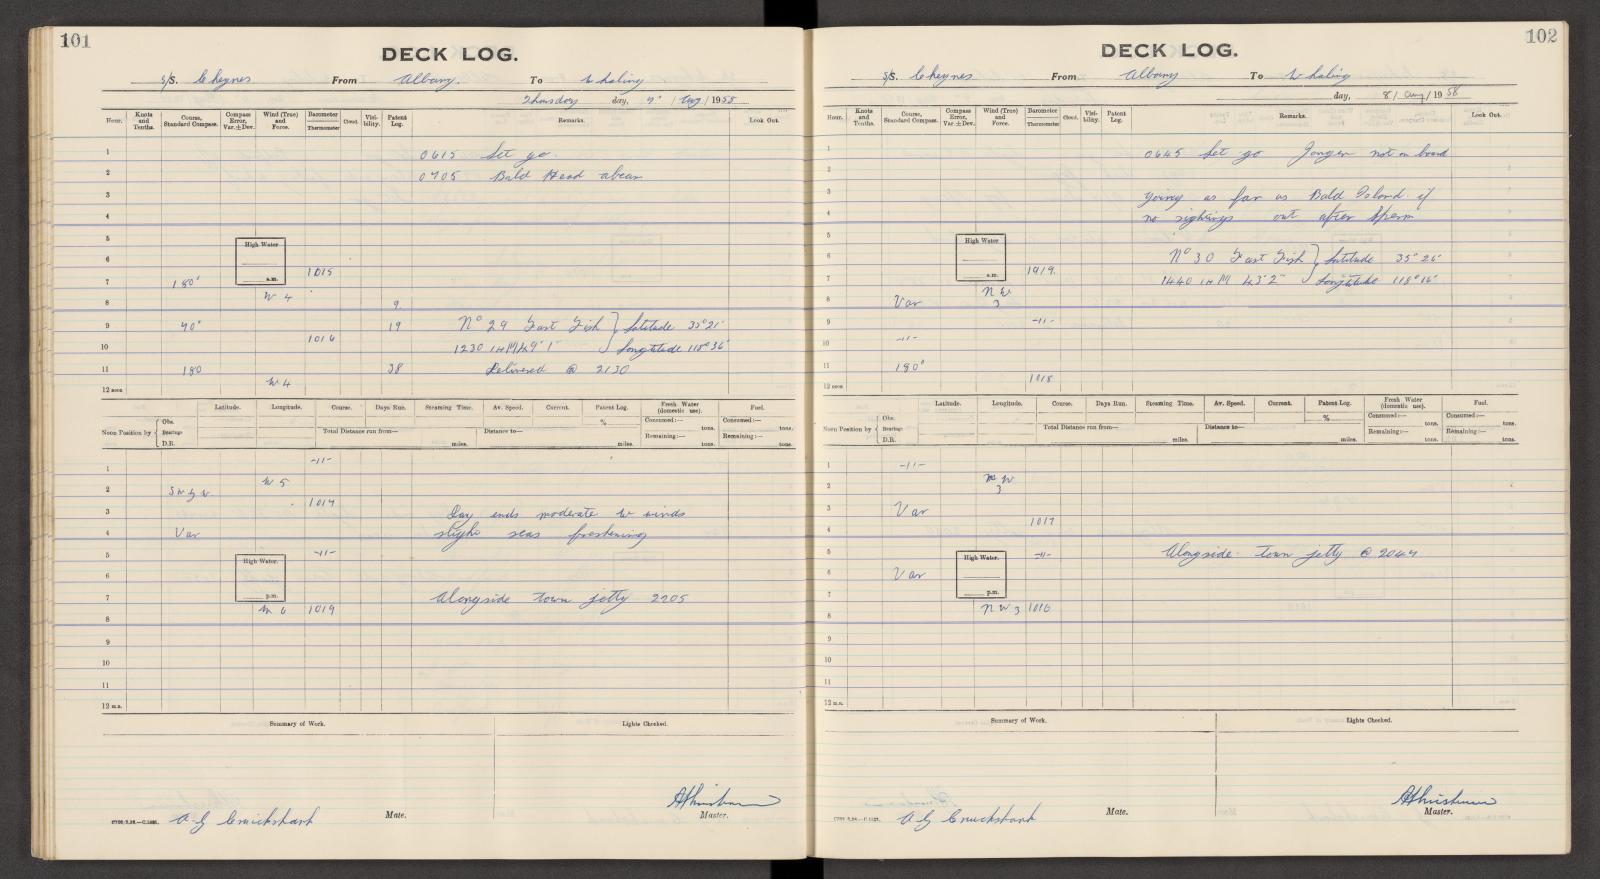 101
DECK LOG.
S/S. Cheynes From Albany. To Whaling
Thursday day, 7" / Aug / 1958
Hour. Knots and Tenths. Course, Standard Compass. Compass Error, Var. ± Dev. Wind (True) and Force. Barometer Thermometer Cloud. Visibility. Patent Log. Remarks. Look Out.
1 0615 Set go.
2 0705 Bald Head abeam
3
4
5 High Water
6
7 180° a.m. 1015
8 W 4 9
9 90° 19 No 29 Fast Fish } Latitude 35° 21'
10 1016 1230 1H M 49' 1" Longtitude 118° 36'
11 180 38 Delivered @ 2130
12 noon W 4
Latitude. Longitude. Course. Days Run. Steaming Time. Av. Speed. Current. Patent Log. Fresh Water (domestic use). Fuel.
Noon Position by { Obs. Bearings D.R. % Consumed:— tons. Consumed:— tons.
Total Distance run from— miles. Distance to— miles. Remaining:— tons. Remaining:— tons.
1 -11-
2 S W by W W 5
3 1017 Day ends moderate W winds
4 Var slight seas freshening
5 High Water. -11-
6
7 p.m. Alongside town jetty 2205
8 W 6 1019
9
10
11
12 m.n.
Summary of Work. Lights Checked.
A G Cruickshank Mate. Master.
102
DECK LOG.
S/S. Cheynes From Albany To Whaling
day, 8 / Aug / 1958
Hour. Knots and Tenths. Course, Standard Compass. Compass Error, Var. ± Dev. Wind (True) and Force. Barometer Thermometer Cloud. Visibility. Patent Log. Remarks. Look Out.
1 0645 Set go Jongen not on board
2
3 Going as far as Bald Island if
4 no sightings out after Sperm
5 High Water
6 No 30 Fast Fish } Latitude 35° 26'
7 a.m. 1019. 1440 1H M 43' 2" Longtitude 118° 16'
8 Var N W 3
9 -11-
10 -11-
11 180°
12 noon 1018
Latitude. Longitude. Course. Days Run. Steaming Time. Av. Speed. Current. Patent Log. Fresh Water (domestic use). Fuel.
Noon Position by { Obs. Bearings D.R. % Consumed:— tons. Consumed:— tons.
Total Distance run from— miles. Distance to— miles. Remaining:— tons. Remaining:— tons.
1 -11-
2 N W 3
3 Var
4 1017
5 High Water. -11- Alongside town jetty @ 2047
6 Var
7 p.m.
8 N W 3 1016
9
10
11
12 m.n.
Summary of Work. Lights Checked.
A G Cruickshank Mate. Master.